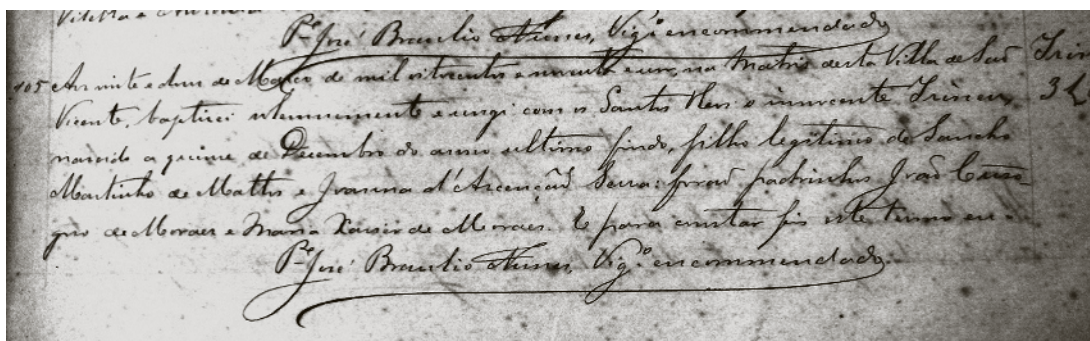 Pe José Braulio Nunes, Vigo encommendado
105 Aos vinte e dous de Março de mil oitocentos e noventa e um, na Matriz desta Villa de São
Vicente, baptizei solemnemente e ungi com os Santos Oleos o innocente Irineu,
nascido a quinze de Dezembro do anno ultimo findo, filho legitimo de Sancho
Martinho de Mattos e Joanna d'Ascenção Serra: forão padrinhos João
de Moraes e Maria Xavier de Moraes. E para constar fiz este termo em
Pe José Braulio Nunes, Vigo encommendado.